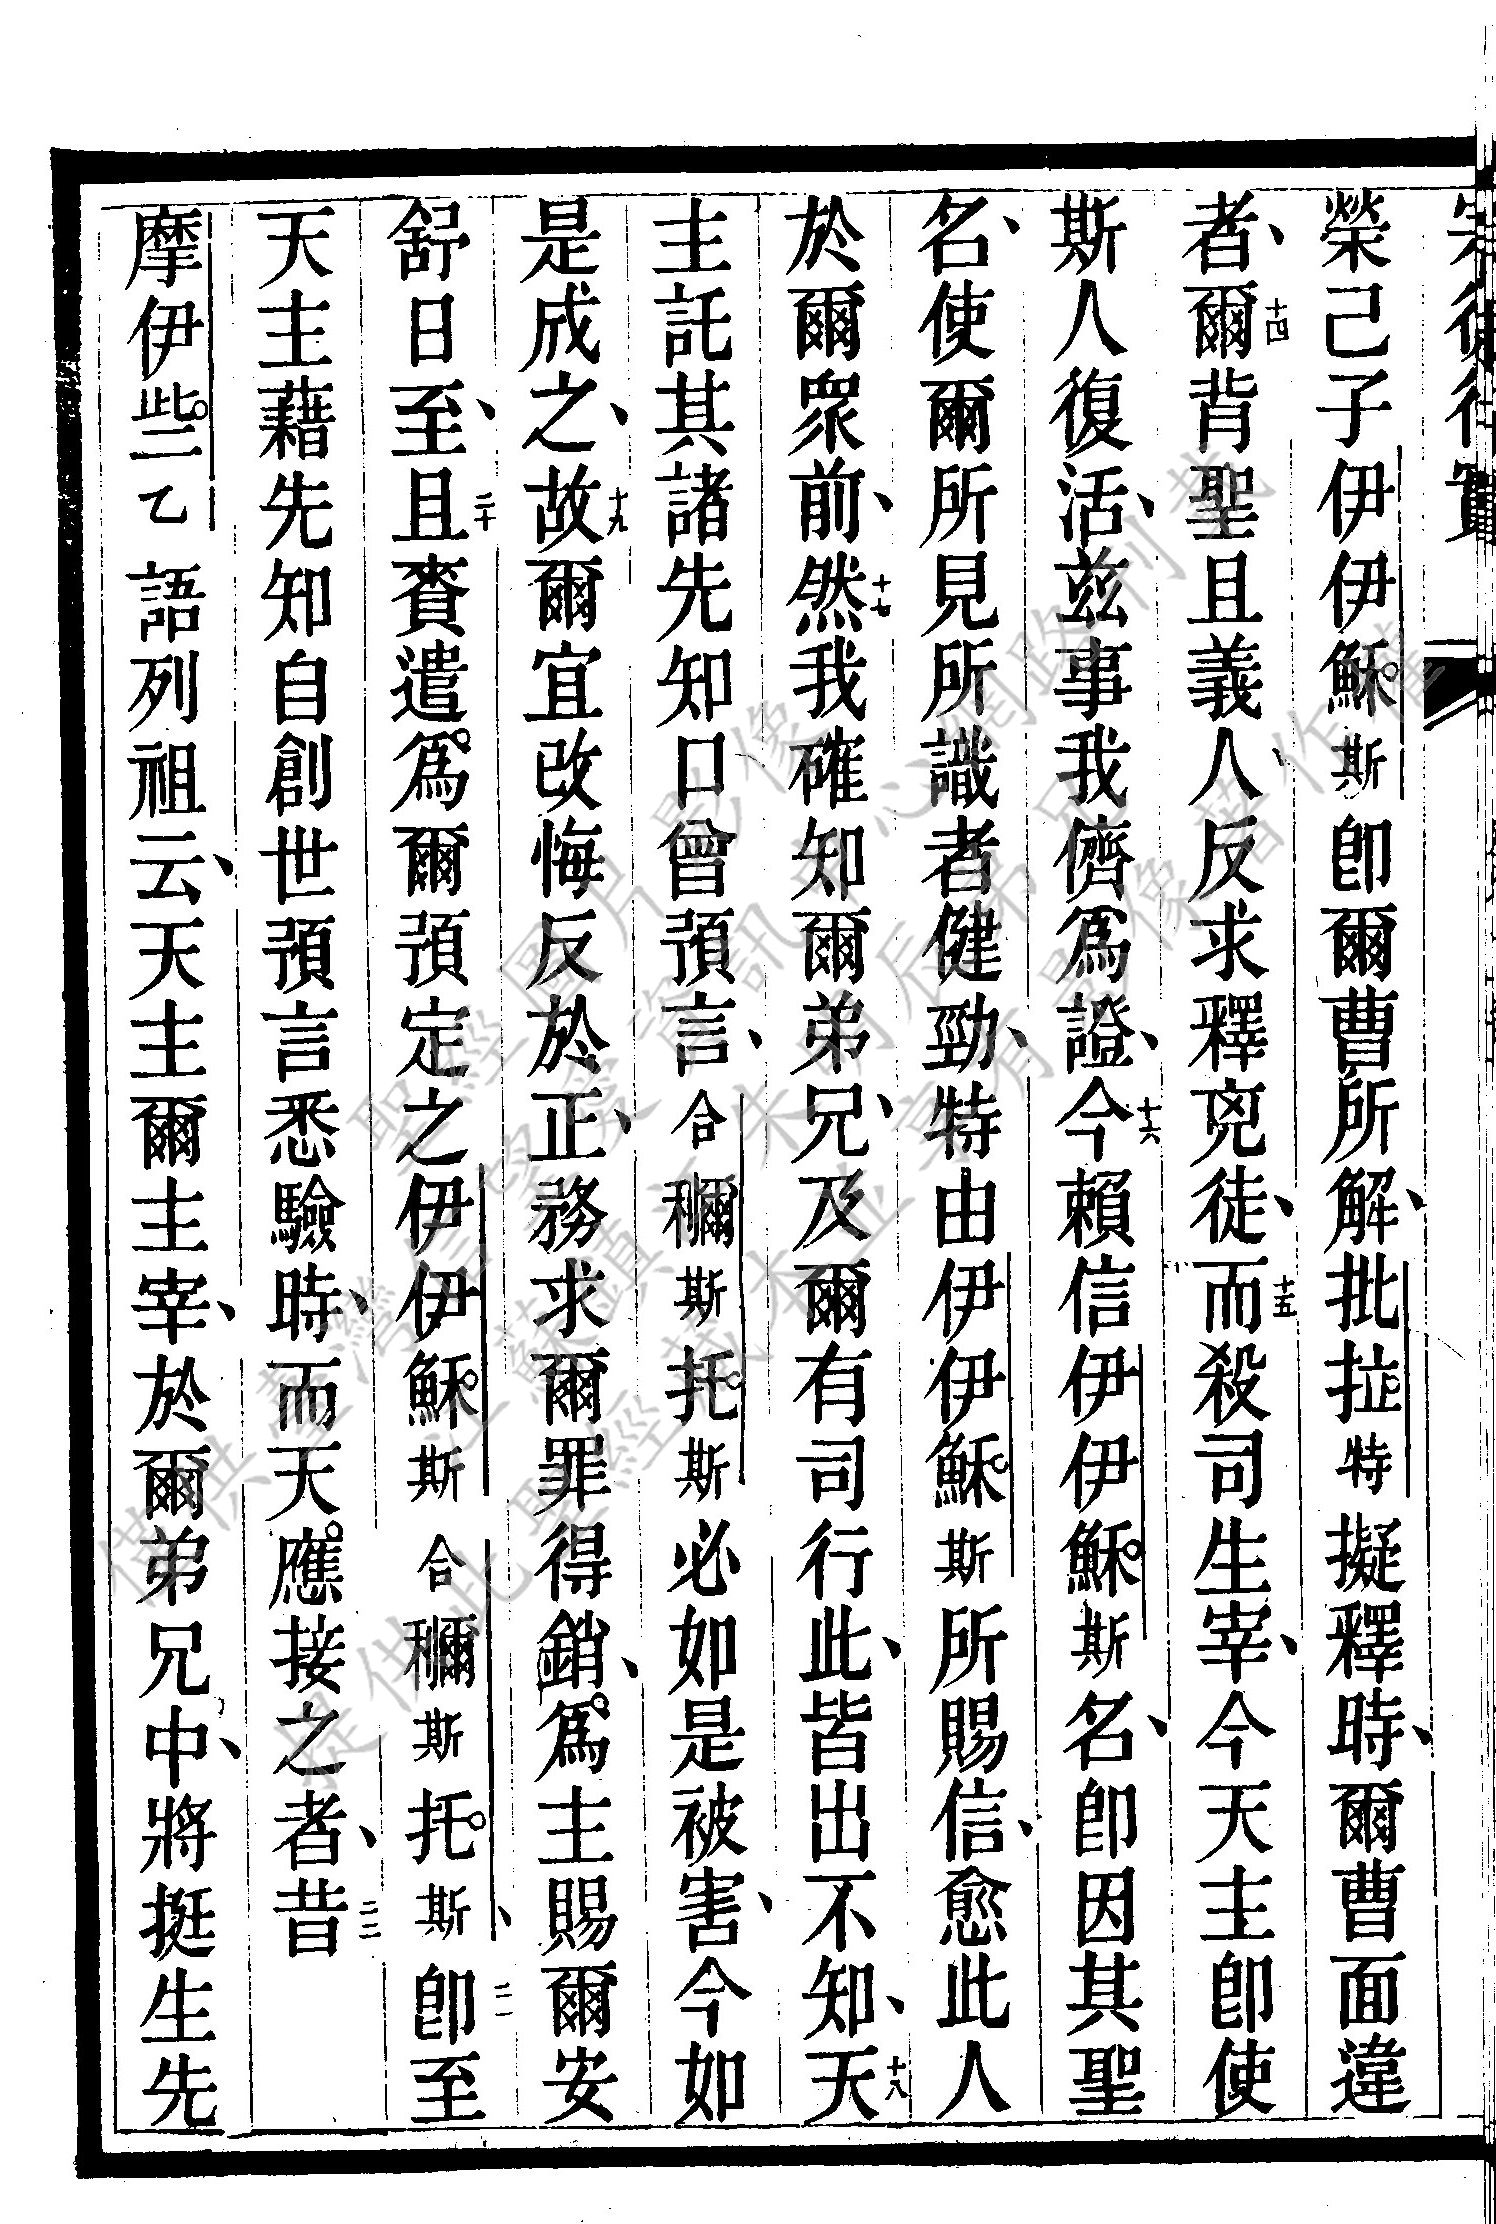 榮己子伊伊穌斯卽爾曹所解、批拉特擬釋時、爾曹面違
者、十四爾背聖且義人、反求釋兇徒、十五而殺司生宰、今天主卽使
斯人復活、茲事我儕爲證、十六今賴信伊伊穌斯名、卽因其聖
名、使爾所見所識者健勁、特由伊伊穌斯所賜信、愈此人
於爾衆前、十七然我確知爾弟兄、及爾有司行此、皆出不知、十八天
主託其諸先知口曾預言、合穪斯托斯必如是被害、今如
是成之、十九故爾宜改悔反於正、務求爾罪得銷、爲主賜爾安
舒日至、二十且賚遣爲爾預定之伊伊穌斯合穪斯托斯、二一卽至
天主藉先知自創世預言悉驗時、而天應接之者、二二昔
摩伊些乙語列祖云、天主爾主宰、於爾弟兄中、將挺生先
僅供臺灣聖經資訊
聖經圖片影像